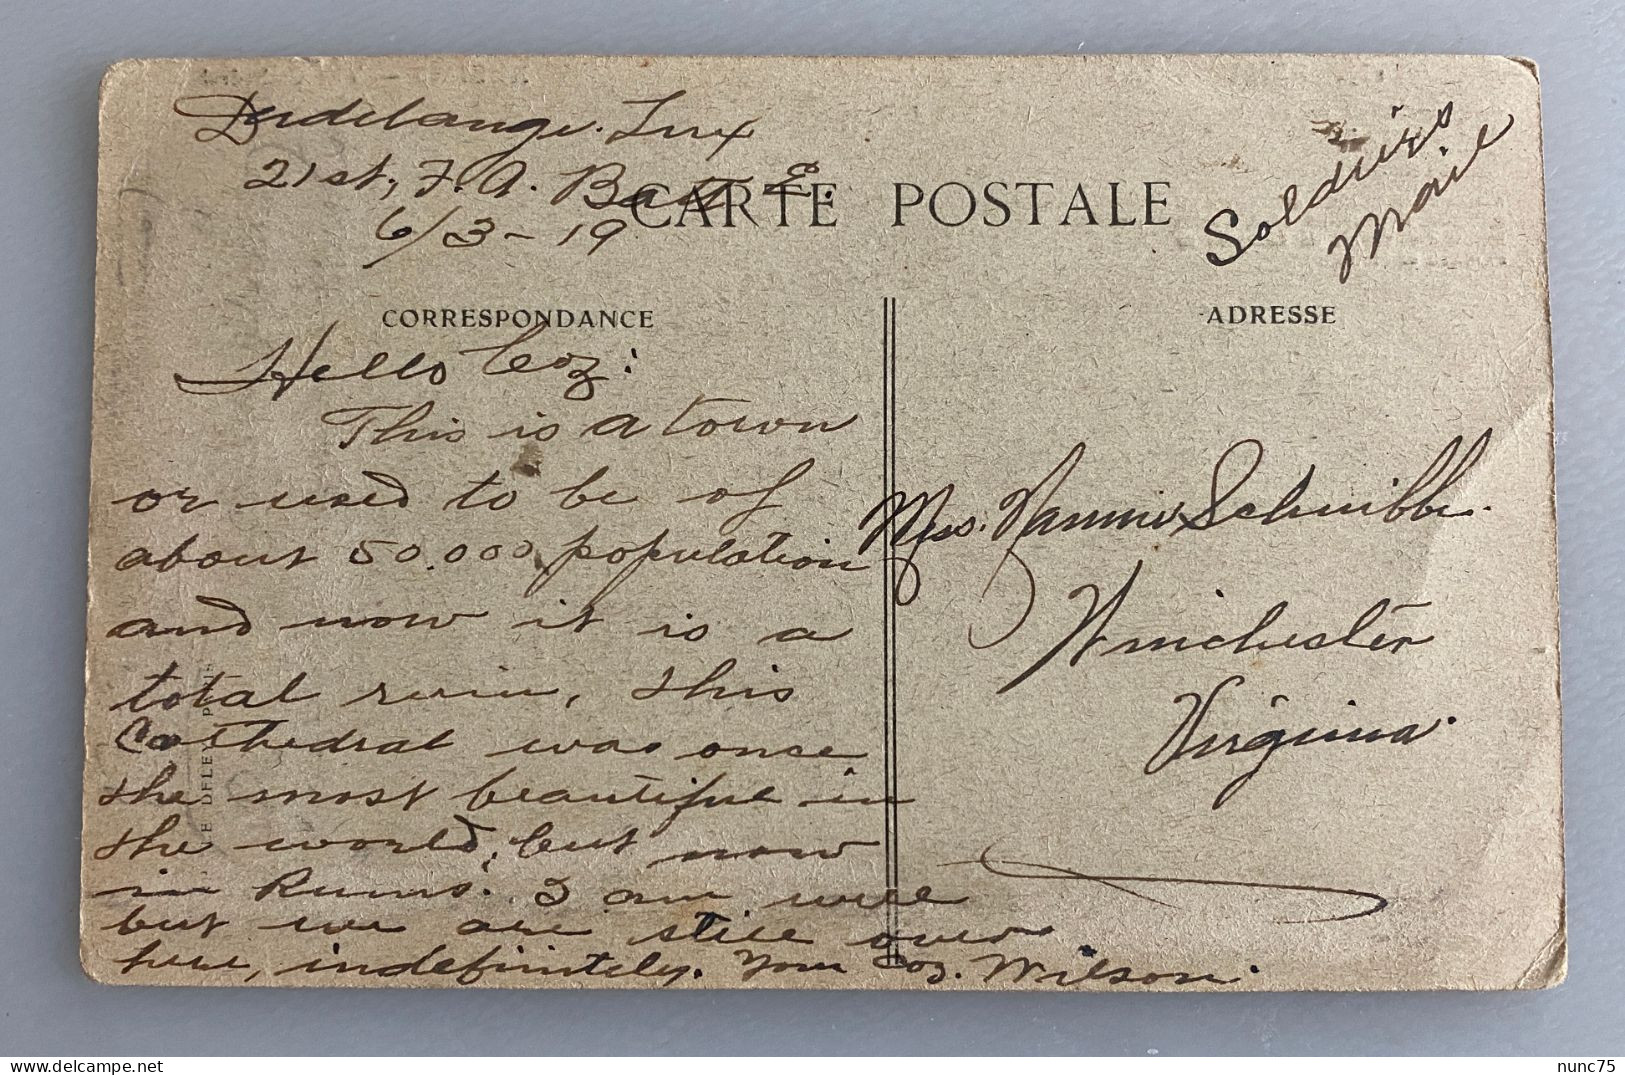 Dudelange. Lux
21st, F. A. Batt E.
6/3-19
CARTE POSTALE
Soldiers
Maile
CORRESPONDANCE
ADRESSE
Hello Coz:
This is a town
or used to be of
about 50.000 population
and now it is a
total ruin, this
Cathedral was once
the most beautiful in
the world, but now
in Ruins. I am well
but we are still over
here, indefinitely. Your Coz. Wilson.
Miss. Nannie
Winchester
Virginia.
nunc75